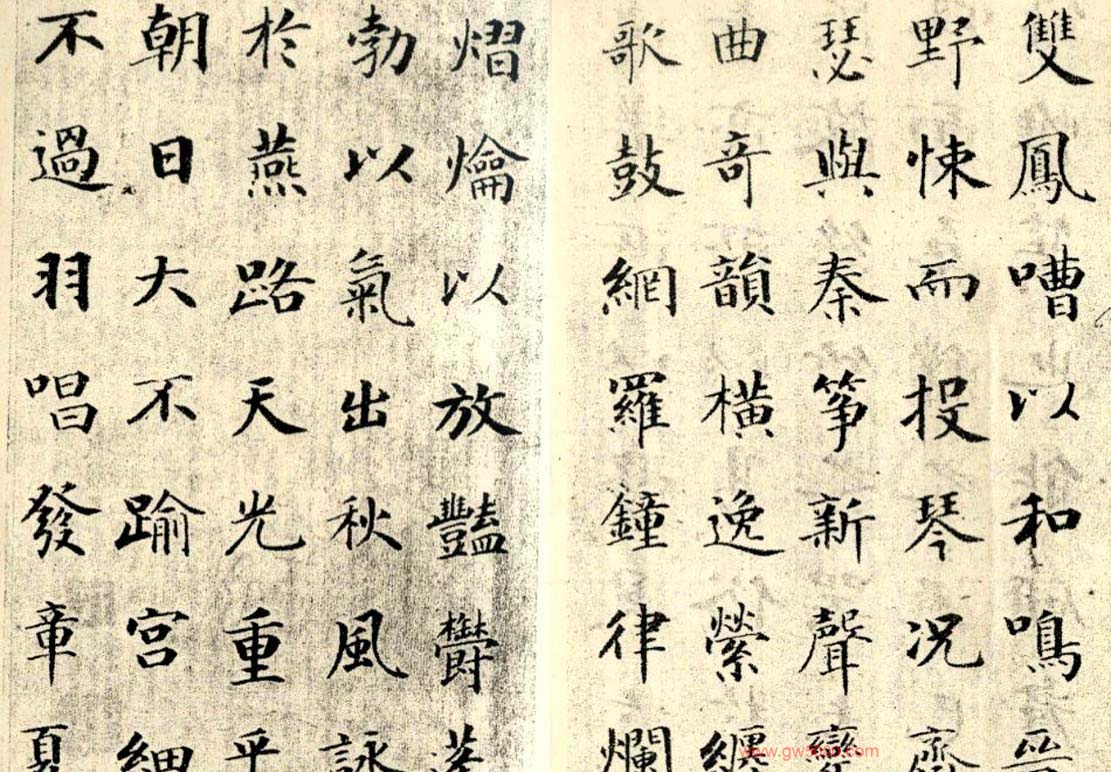 雙鳳嘈以和鳴晉
野悚而投琴況齊
瑟與秦箏新聲變
曲奇韻橫逸縈纏
歌鼓網羅鐘律爛
熠爚以放豔鬱蓬
勃以氣出秋風詠
於燕路天光重乎
朝日大不踰宮細
不過羽唱發章夏